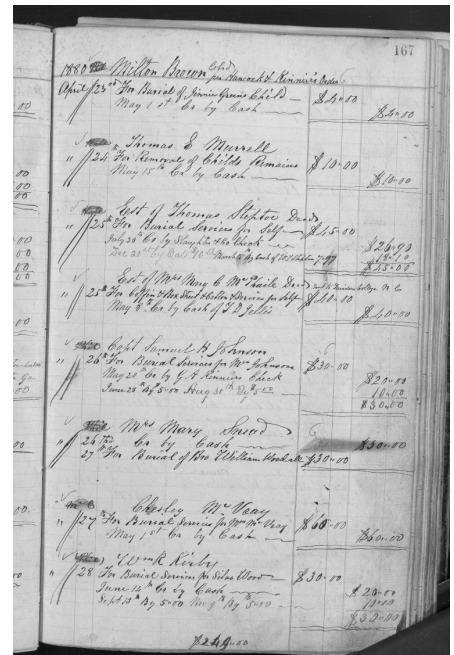 167
1880 Milton Brown Cold per Hancock & Kinnier's Order
April 23d For Burial of Jinnie Child $4.00
May 1st Cr by Cash $4.00
Thomas E Murrell
" 24 For Removal of Childs Remains $10.00
May 15th Cr by Cash $10.00
Est of Thomas Steptoe Decd
" 25th For Burial Services for Self $45.00
July 30th Cr by & Co check $26.90
Dec 21st By 18.10
$45.00
Est of Mrs Mary C Decd
" 25th For Coffin & Box & Services for Self $40.00
May 8th Cr by Cash of $40.00
Capt Samuel H Johnson
" 26th For Burial Services for Mrs Johnson $30.00
May 20th Cr by G A Kinnier Check $20.00
June 28th By 5.00 Aug 31st By 5.00 10.00
$30.00
Mrs Mary Snead
" 26th Cr by Cash $30.00
27th For Burial of Bro William $30.00
Chesley McVeay
" 27th For Burial Services for Mrs McVeay $60.00
May 1st Cr by Cash $60.00
Wm K Kirby
" 28 For Burial Services for Silas Wood $30.00
June 14th Cr by Cash $20.00
Sept 13th By 5.00 Nov 9th By 5.00 10.00
$30.00
$249.00